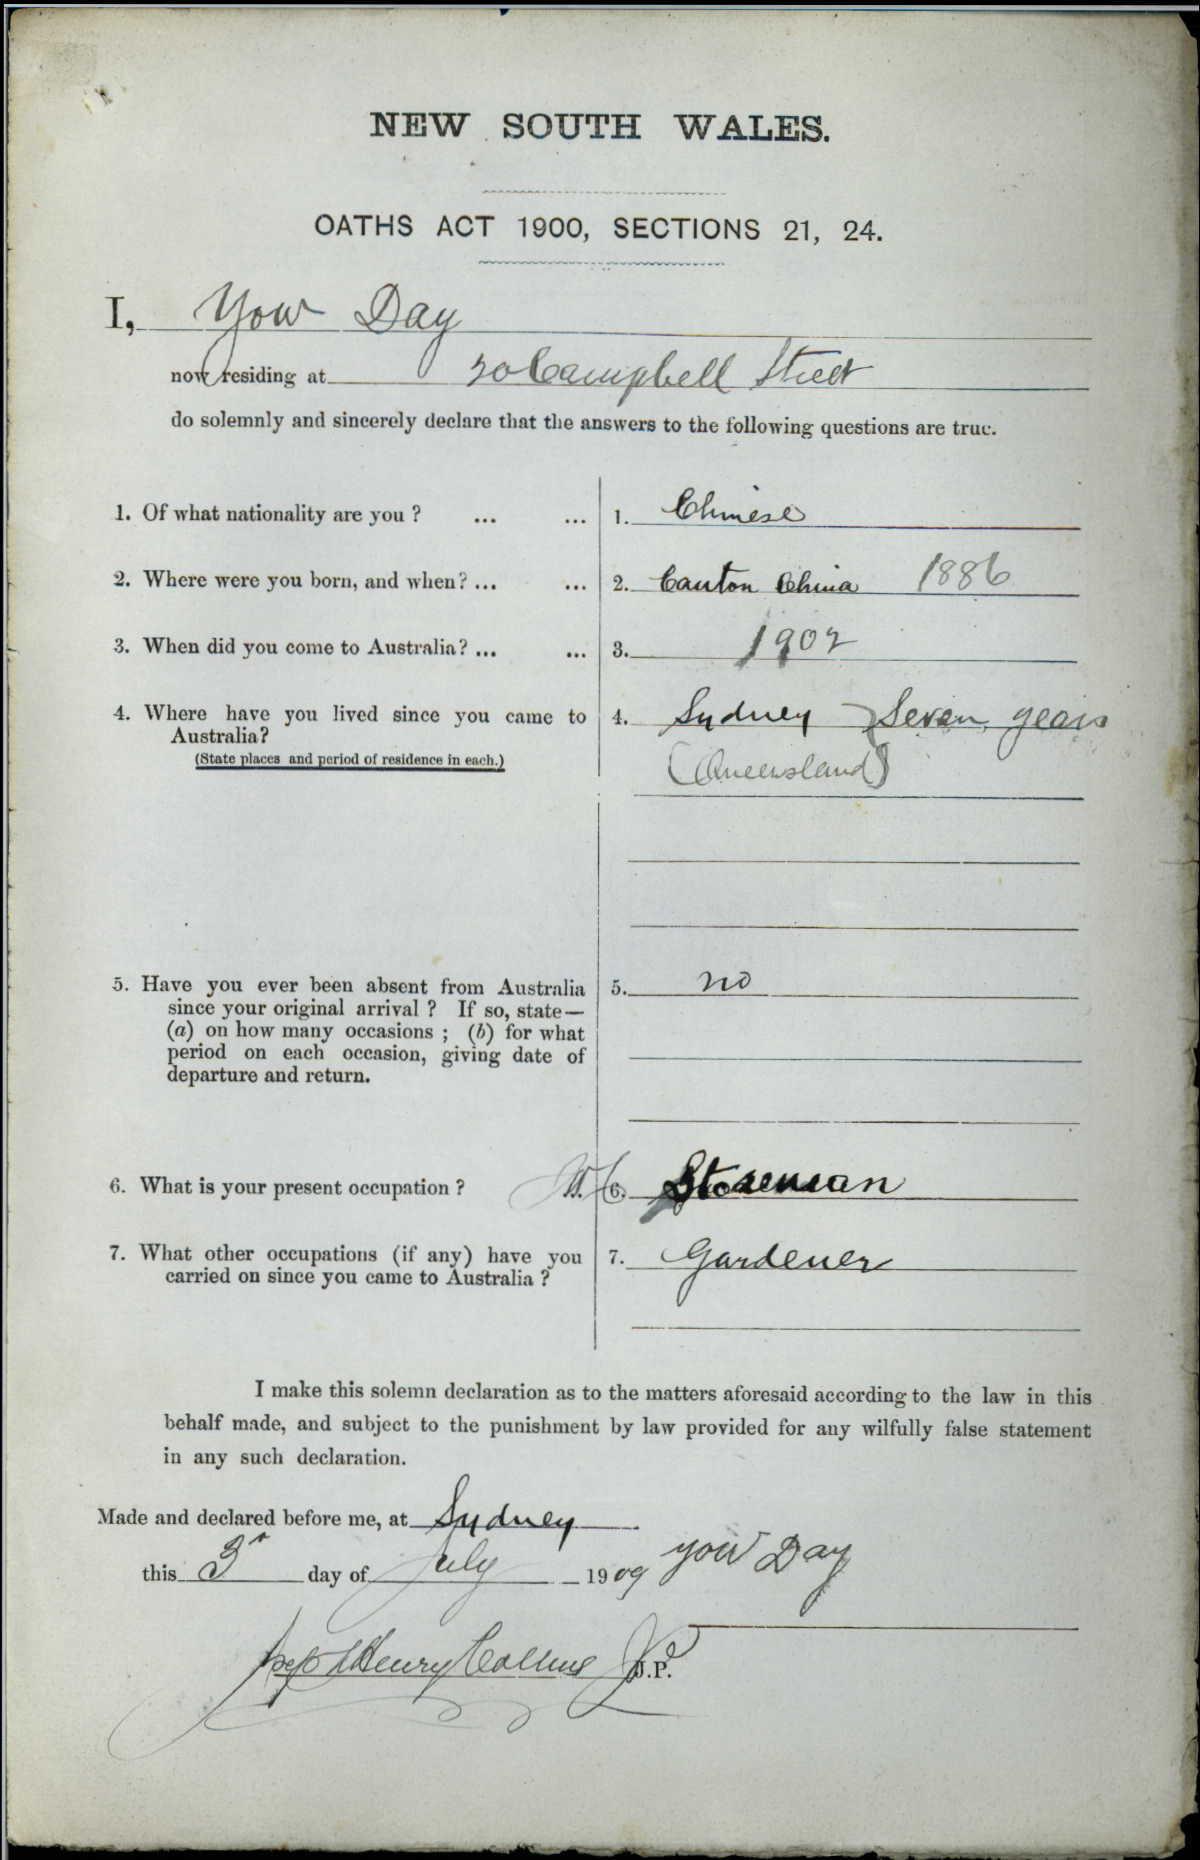 NEW SOUTH WALES.
OATHS ACT 1900, SECTIONS 21, 24.
I, Yow Day
now residing at 20 Campbell Street
do solemnly and sincerely declare that the answers to the following questions are true.
1. Of what nationality are you ? ... ... 1. Chinese
2. Where were you born, and when? ... ... 2. Canton China 1886
3. When did you come to Australia? ... ... 3. 1902
4. Where have you lived since you came to 4. Sydney Seven years
Australia?
(State places and period of residence in each.) (Queensland)
5. Have you ever been absent from Australia 5. no
since your original arrival ? If so, state—
(a) on how many occasions ; (b) for what
period on each occasion, giving date of
departure and return.
6. What is your present occupation ? 6. Storeman
7. What other occupations (if any) have you 7. Gardener
carried on since you came to Australia ?
I make this solemn declaration as to the matters aforesaid according to the law in this
behalf made, and subject to the punishment by law provided for any wilfully false statement
in any such declaration.
Made and declared before me, at Sydney
this 3r day of July 1909 yow Day
Henry Collins J.P.